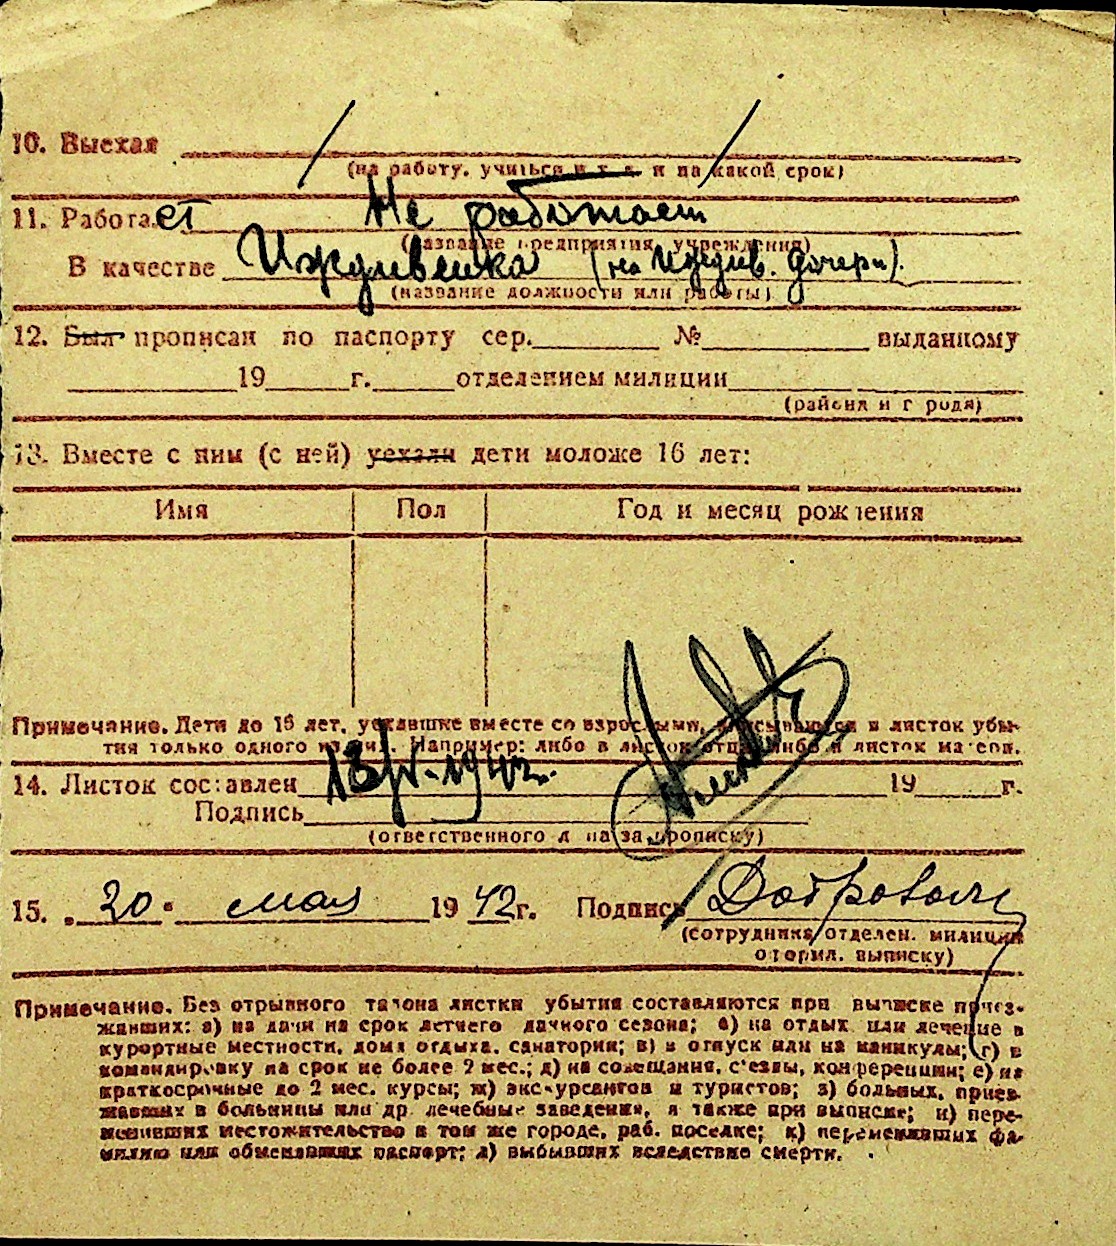 10. Выехал
(на работу, учиться и т. д. и на какой срок)
11. Работает Не работает
(название предприятия, учреждения)
В качестве Иждивенка (на иждив. дочери).
(название должности или работы)
12. Был прописан по паспорту сер. № выданному
19 г. отделением милиции
(района и города)
13. Вместе с ним (с ней) уехали дети моложе 16 лет:
Имя Пол Год и месяц рождения
Примечание. Дети до 16 лет, уехавшие вместе со взрослыми, вписываются в листок убы-
тия только одного из них. Например: либо в листок отца, либо в листок матери.
14. Листок составлен 13/V-1942. 19 г.
Подпись
(ответственного л на за прописку)
15. „20“ мая 1942г. Подпись
(сотрудника отделен. милиции
оформл. выписку)
Примечание. Без отрывного талона листки убытия составляются при выписке приез-
жавших: а) на дачи на срок летнего дачного сезона; б) на отдых или лечение в
курортные местности, дома отдыха, санатории; в) в отпуск или на каникулы; г) в
командировку на срок не более 2 мес.; д) на совещания, съезды, конференции; е) на
краткосрочные до 2 мес. курсы; ж) экскурсантов и туристов; з) больных, приез-
жавших в больницы или др. лечебные заведения, а также при выписке; и) пере-
менивших местожительство в том же городе, раб. поселке; к) переменивших фа-
милию или обменявших паспорт; л) выбывших вследствие смерти.